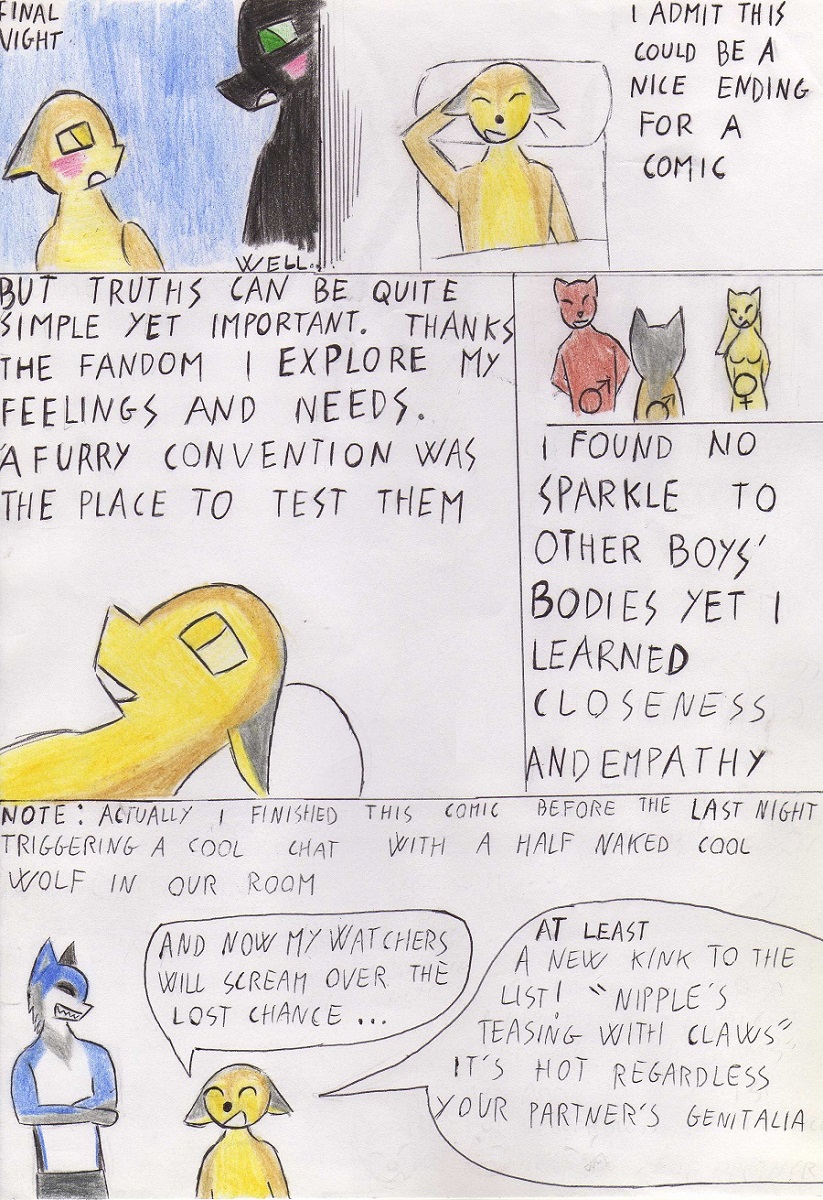 FINAL
NIGHT
WELL...
I ADMIT THIS
COULD BE A
NICE ENDING
FOR A
COMIC
BUT TRUTHS CAN BE QUITE
SIMPLE YET IMPORTANT. THANKS
THE FANDOM I EXPLORE MY
FEELINGS AND NEEDS.
A FURRY CONVENTION WAS
THE PLACE TO TEST THEM
I FOUND NO
SPARKLE TO
OTHER BOYS'
BODIES YET I
LEARNED
CLOSENESS
AND EMPATHY
NOTE: ACTUALLY I FINISHED THIS COMIC BEFORE THE LAST NIGHT
TRIGGERING A COOL CHAT WITH A HALF NAKED COOL
WOLF IN OUR ROOM
AND NOW MY WATCHERS
WILL SCREAM OVER THE
LOST CHANCE ...
AT LEAST
A NEW KINK TO THE
LIST! "NIPPLE'S
TEASING WITH CLAWS"
IT'S HOT REGARDLESS
YOUR PARTNER'S GENITALIA